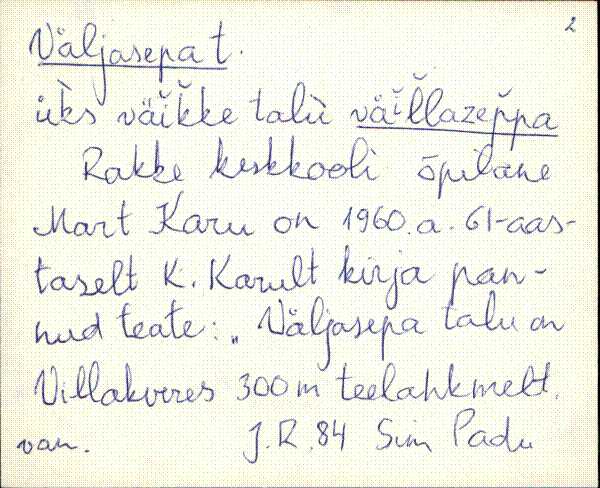 2
Väljasepa t.
ùks väi̮ǩke talù väi̮l̆lazep̆pa
Rakke keskkooli õpilane
Mart Karu on 1960.a. 61-aas-
taselt K. Karult kirja pan-
nud teate: „Väljasepa talu on
Villakveres 300 m teelahkmelt.
van. J.R. 84 Sim Padu